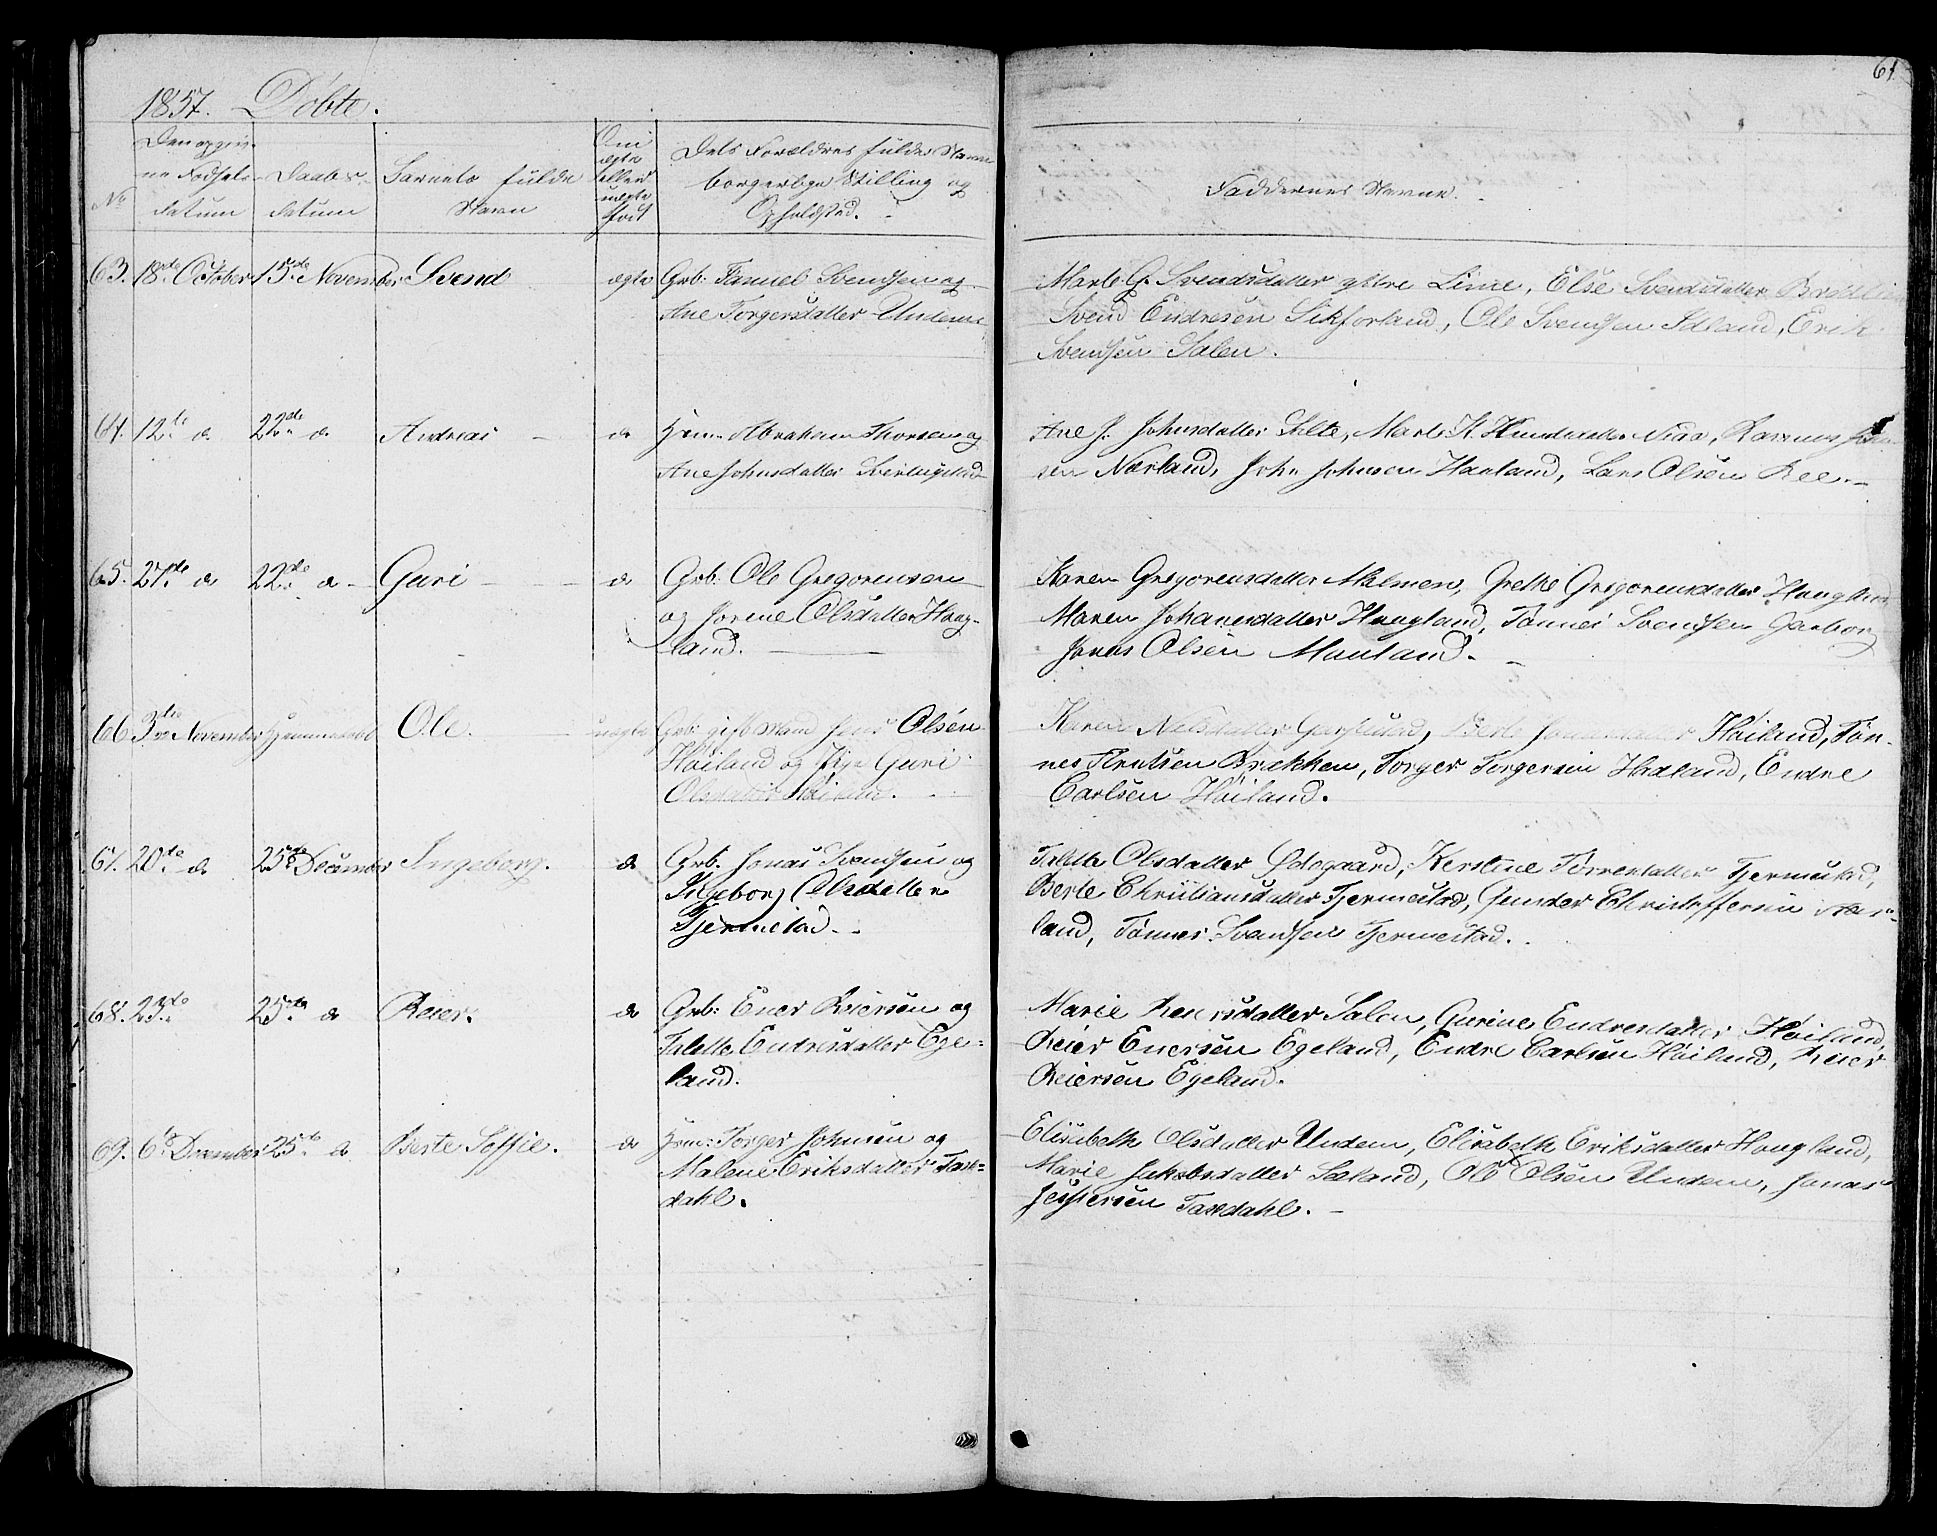 61
1857. Döbte.
No
Den opgiv-
ne Fødsels-
datum
Daabs-
datum
Barnets fulde
Navn
Om
ægte
eller
uægte
født
Dets Forældres fulde Navn
borgerlige Stilling og
Opholdsted.
Faddernes Navne.
63. 18de October 15de November Svend ægte Grb: Samuel Svendsen og
Ane Torgersdatter Undem
Marte G. Svendsdatter ystre Lime, Else Svendsdatter
Svend Endresen Sikforland, Ole Svendsen Idland, Erik
Svendsen Salen.
64. 12te d 22de d Andreas d Hmd. Abraham Thorsen og
Ane Johnsdatter
Ane J. Johnsdatter Selte, Marte K. Rasmus
sen Nærland, John Johnsen Haaland, Lars Olsen Ree.
65. 27de d 22de d Guri d Grb. Ole Gregoreusen
og Jorene Olsdatter Haug-
land.
Karen Gregoreusdatter Malmen, Grethe Gregoreusdatter Haugland
Maren Johanesdatter Haugland, Tønnes Svendsen Garborg
Jonas Olsen Mauland.
66 3die November Hjemmedøbt Ole. uægte Grb: gift Mand Jens Olsen
Høiland og Pige Guri
Olsdatter Høiland.
Karen Nelsdatter Berte Høiland, Tøn-
nes Knutsen Brekken, Torger Torgersen Hadland, Endre
Carlsen Høiland.
67. 20de d 25de December Ingeborg. d Grb. Jonas Svendsen og
Ingeborg Olsdatter
Tjermestad.
Talette Olsdatter Ødegaard, Kerstine Tørresdatter Tjermestad,
Berte Christiansdatter Tjermestad, Gunder Christoffersen
land, Tønnes Svendsen Tjermestad.
68. 23de 25de d Reier. d Grb: Ener Reiersen og
Talette Endresdatter Ege-
land.
Marie Reiersdatter Salen, Gurine Endresdatter Høiland,
Reier Enersen Egeland, Endre Carlsen Høiland, Reier
Reiersen Egeland.
69. 6te December 25de d Berte Soffie. d Hmd: Torger Johnsen og
Malene Eriksdatter Taks-
dahl.
Elisabeth Olsdatter Undem, Elisabeth Eriksdatter Haugland,
Marie Jakobsdatter Sæland, Ole Olsen Undem, Jonas
Jespersen Taksdahl.